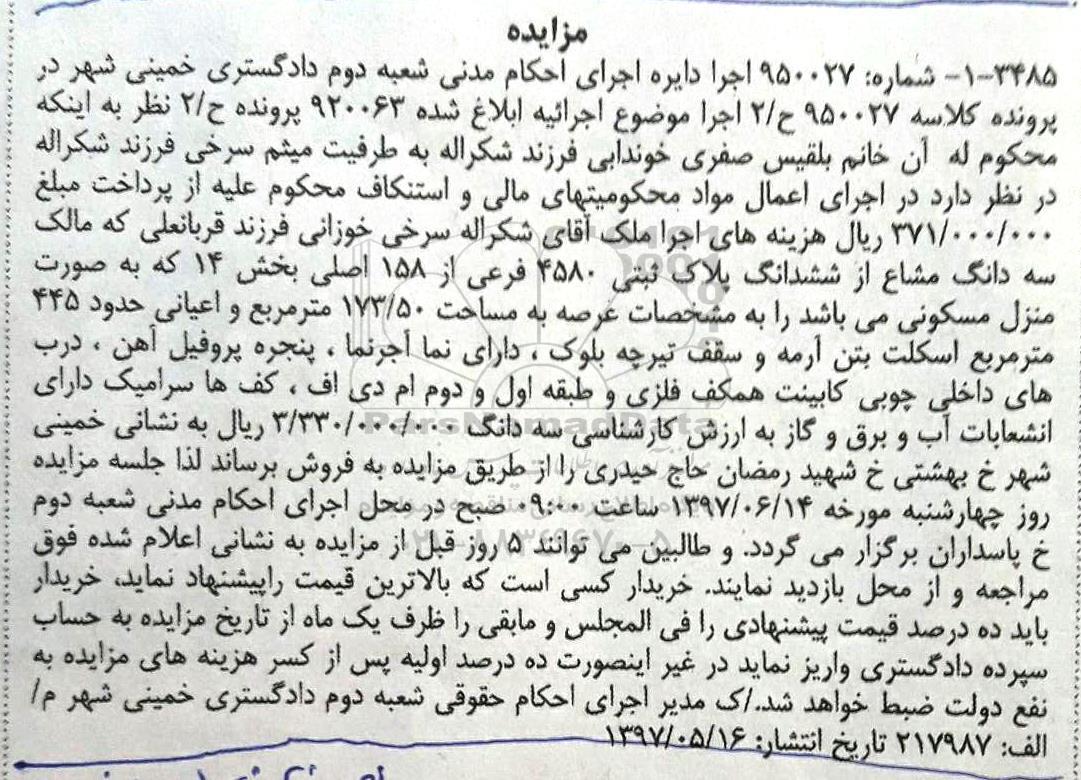 مزایده
۳۴۸۵-۱- شماره: ۹۵۰۰۲۷ اجرا دایره اجرای احکام مدنی شعبه دوم دادگستری خمینی شهر در
پرونده کلاسه ۹۵۰۰۲۷ ح/۲ اجرا موضوع اجرائیه ابلاغ شده ۹۲۰۰۶۳ پرونده ح/۲ نظر به اینکه
محکوم له آن خانم بلقیس صفری خوندابی فرزند شکراله به طرفیت میثم سرخی فرزند شکراله
در نظر دارد در اجرای اعمال مواد محکومیتهای مالی و استنکاف محکوم علیه از پرداخت مبلغ
۳۷۱/۰۰۰/۰۰۰ ریال هزینه های اجرا ملک آقای شکراله سرخی خوزانی فرزند قربانعلی که مالک
سه دانگ مشاع از ششدانگ پلاک ثبتی ۴۵۸۰ فرعی از ۱۵۸ اصلی بخش ۱۴ که به صورت
منزل مسکونی می باشد را به مشخصات عرصه به مساحت ۱۷۳/۵۰ مترمربع و اعیانی حدود ۴۴۵
مترمربع اسکلت بتن آرمه و سقف تیرچه بلوک ، دارای نما آجرنما ، پنجره پروفیل آهن ، درب
های داخلی چوبی کابینت همکف فلزی و طبقه اول و دوم ام دی اف ، کف ها سرامیک دارای
انشعابات آب و برق و گاز به ارزش کارشناسی سه دانگ ۳/۳۳۰/۰۰۰/۰۰۰ ریال به نشانی خمینی
شهر خ بهشتی خ شهید رمضان حاج حیدری را از طریق مزایده به فروش برساند لذا جلسه مزایده
روز چهارشنبه مورخه ۱۳۹۷/۰۶/۱۴ ساعت ۰۹:۰۰ صبح در محل اجرای احکام مدنی شعبه دوم
خ پاسداران برگزار می گردد. و طالبین می توانند ۵ روز قبل از مزایده به نشانی اعلام شده فوق
مراجعه و از محل بازدید نمایند. خریدار کسی است که بالاترین قیمت راپیشنهاد نماید، خریدار
باید ده درصد قیمت پیشنهادی را فی المجلس و مابقی را ظرف یک ماه از تاریخ مزایده به حساب
سپرده دادگستری واریز نماید در غیر اینصورت ده درصد اولیه پس از کسر هزینه های مزایده به
نفع دولت ضبط خواهد شد./ک مدیر اجرای احکام حقوقی شعبه دوم دادگستری خمینی شهر م/
الف: ۲۱۷۹۸۷ تاریخ انتشار: ۱۳۹۷/۰۵/۱۶
ParsNamadData